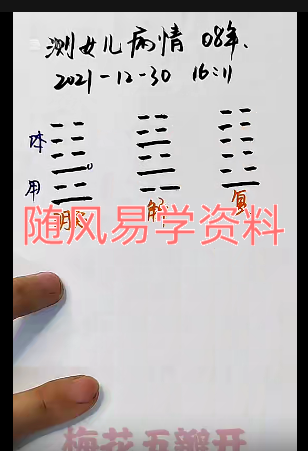 测女儿病情 08年.
2021-12-30 16:11
体
用
解
复
随风易学资料
梅花五瓣开